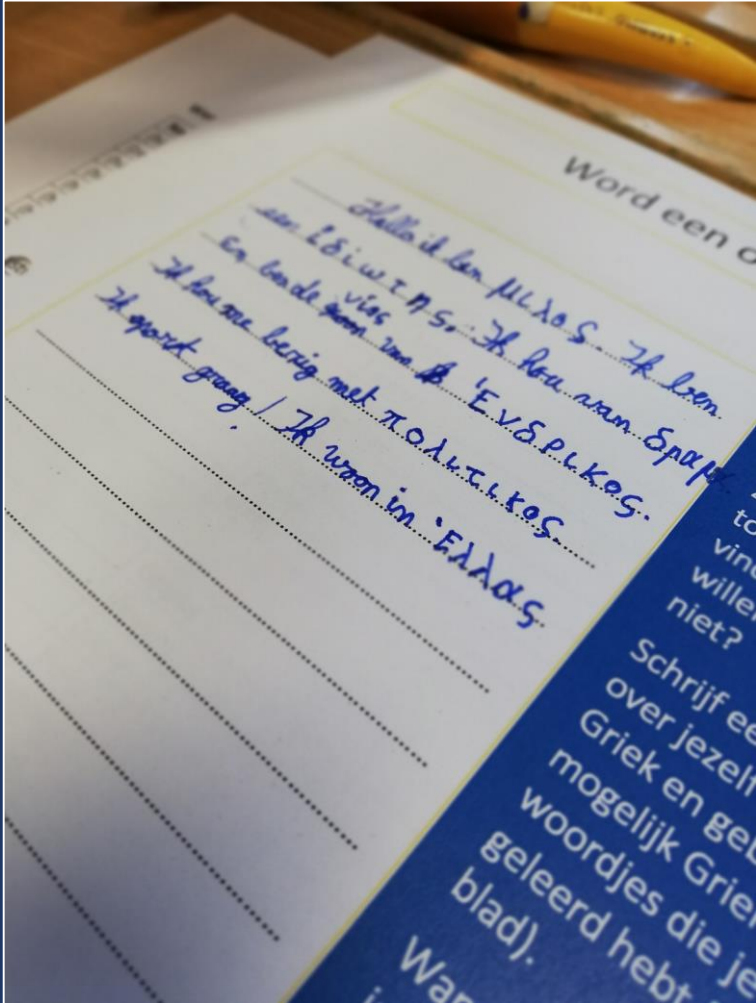 Word een o
Hallo ik ben μιλος. Ik ben
een ἰδιωτης. Ik hou van δραμα
En ben de υἱος van Ἑνδρικος.
Ik hou me bezig met πολιτικος
Ik sport graag! Ik woon in Ἑλλας
to
vind
willen
niet?
Schrijf ee
over jezelf
Griek en geb
mogelijk Grie
woordjes die je
geleerd hebt
blad).
War